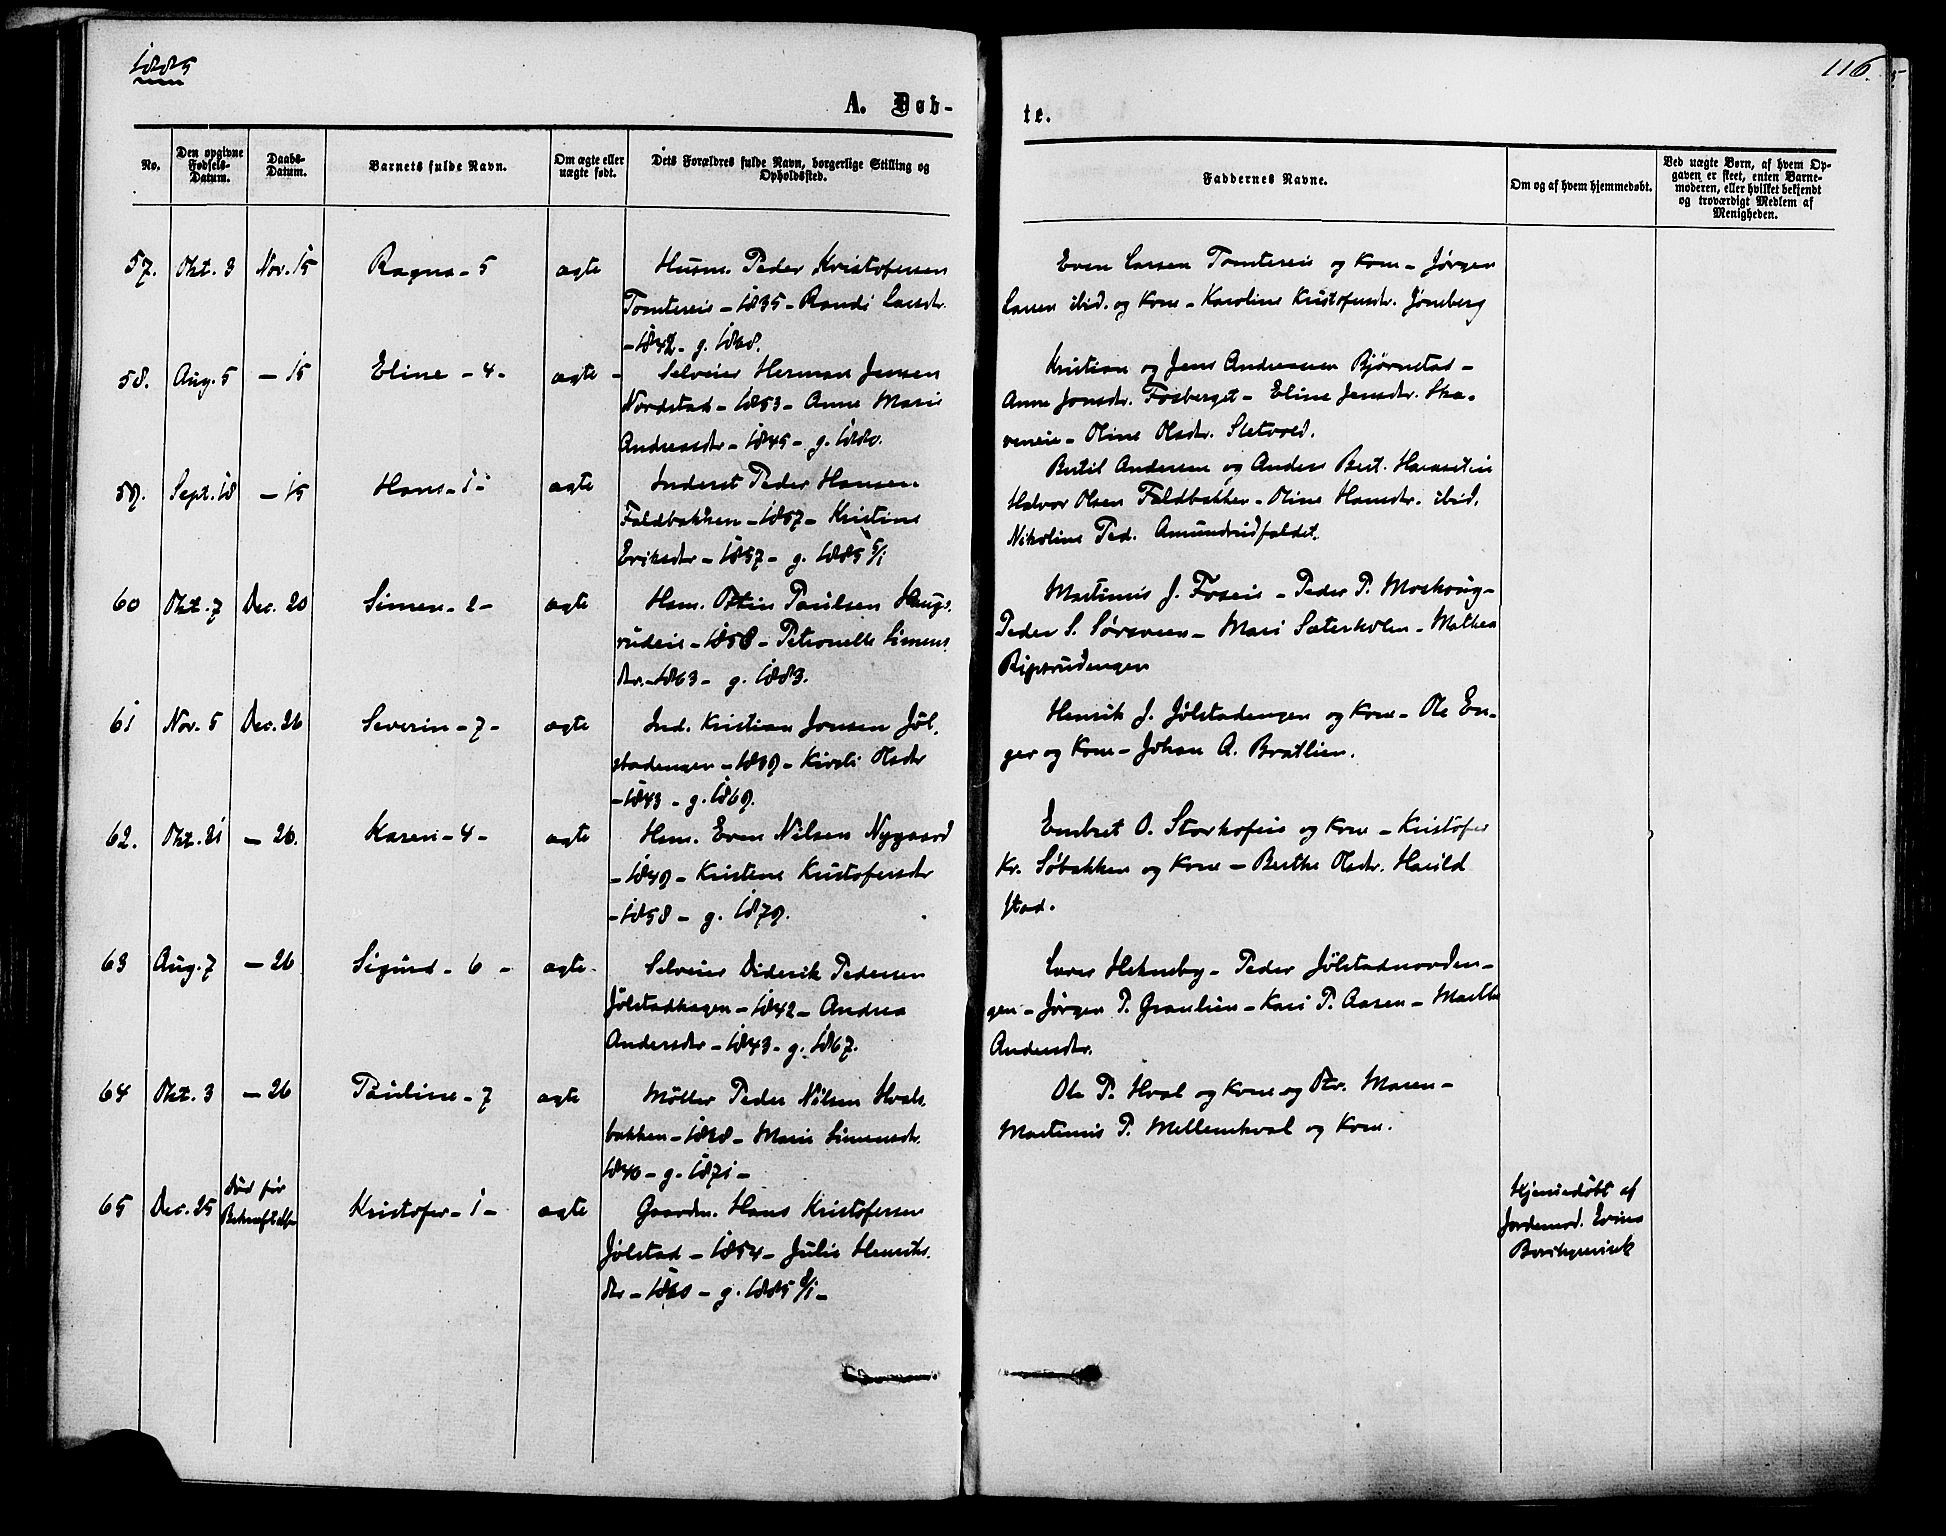 1885
116.
A. Døb-
te.
No.
Den opgivne
Fødsels-
Datum.
Daabs-
Datum.
Barnets fulde Navn.
Om ægte eller
uægte født.
Dets Forældres fulde Navn, borgerlige Stilling og
Opholdssted.
Faddernes Navne.
Om og af hvem hjemmedøbt.
Ved uægte Børn, af hvem Op-
gaven er skeet, enten Barne-
moderen, eller hvilket bekjendt
og troværdigt Medlem af
Menigheden.
57. Okt. 3 Nov. 15 Ragna - 5 ægte Husm. Peder Kristofersen
Tomtereie - 1835 - Randi Larsdr.
- 1842 - g. 1868.
Even Larsen Tomtereie og Kone - Jørgen
Larsen ibid. og Kone - Karoline Kristofersdr. Jønsberg
58. Aug. 5 - 15 Eline - 4 - ægte - Selveier Herman Jensen
Nordstad - 1853 - Anne Marie
Andreasdr - 1845 - g. 1880.
Kristian og Jens Andreassen Bjørnstad -
Anne Jonsdr. Fosberget - Eline Jensdr. Ska-
veneie - Oline Olsdr. Sletvold.
59. Sept. 18 - 15 Hans - 1 - ægte Inderst Peder Hansen
Faldbakken - 1857 - Kristine
Eriksdr - 1857 - g. 1885 5/1
Bertil Andersen og Anders Bert.
Halvor Olsen Faldbakken - Oline Hansdr. ibid.
Nikoline Ped. Amundrudfaldet.
60 Okt. 7 Dec. 20 Simen - 2 - ægte Hsm. Ottin Paulsen Haugs-
rudeie - 1858 - Petronelle Simens
dr. - 1863 - g. 1883.
Martinus J. Foseie - Peder P. Moshoug -
Peder S. Sørsveen - Mari Sæterholen - Mathea
Ripsrudengen
61 Nov. 5 Dec. 26 Severin - 7 - ægte Ind. Kristian Jonsen Jøl-
stadengen - 1839 - Kirsti Olsdr
- 1843 - g. 1869.
Henrik J. Jølstadengen og Kone - Ole En-
ger og Kone - Johan A. Brætlien.
62. Okt. 21 - 26. Karen - 4 - ægte Hsm. Even Nilsen Nygaard
- 1849 - Kristine Kristofersdr
- 1858 - g. 1879.
Embret O. Storhofeie og Kone - Kristofer
Kr. Søbakken og Kone - Berthe Olsdr. Harild
stad.
63 Aug. 7 - 26 Sigurd - 6 - ægte - Selveier Diderik Pedersen
Jølstadhagen - 1842 - Andrea
Andersdr - 1843 - g. 1867.
Lars Hekneby - Peder Jølstadnorden-
gen - Jørgen P. Graulien - Kari P. Aasen - Marthe
Andersdr.
64 Okt. 3 - 26 Pauline - 7 ægte Møller Peder Nilsen Hvals
bakken - 1838 - Marie Simensdr.
1840 - g. 1871 -
Ole P. Hval og Kone og Dtr. Maren -
Martinus P. Mellemhval og Kone.
65 Dec. 25 Død før
Bekræftelse Kristofer - 1 - ægte Gaardm. Hans Kristofersen
Jølstad - 1854 - Julie Henriks.
dr - 1860 - g. 1885 8/1 -
Hjemmedøbt af
Jordemod. Evine